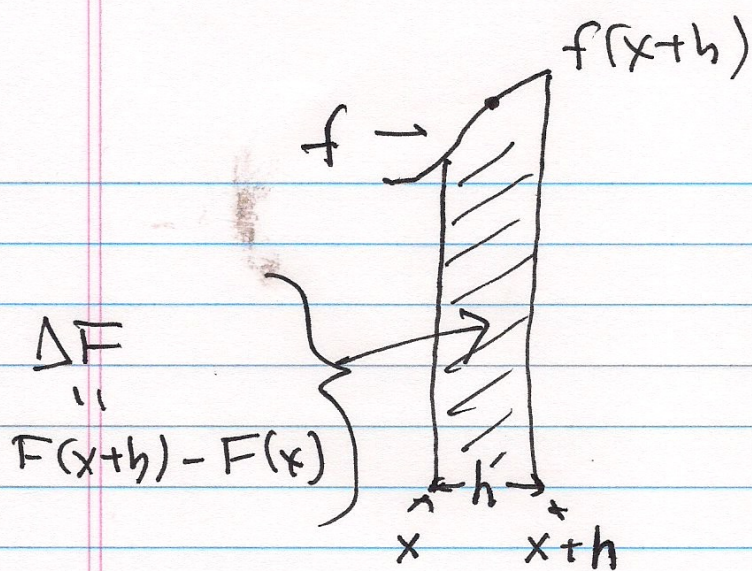 f(x+h)
f →
ΔF
"
F(x+h) - F(x)
h
x
x+h